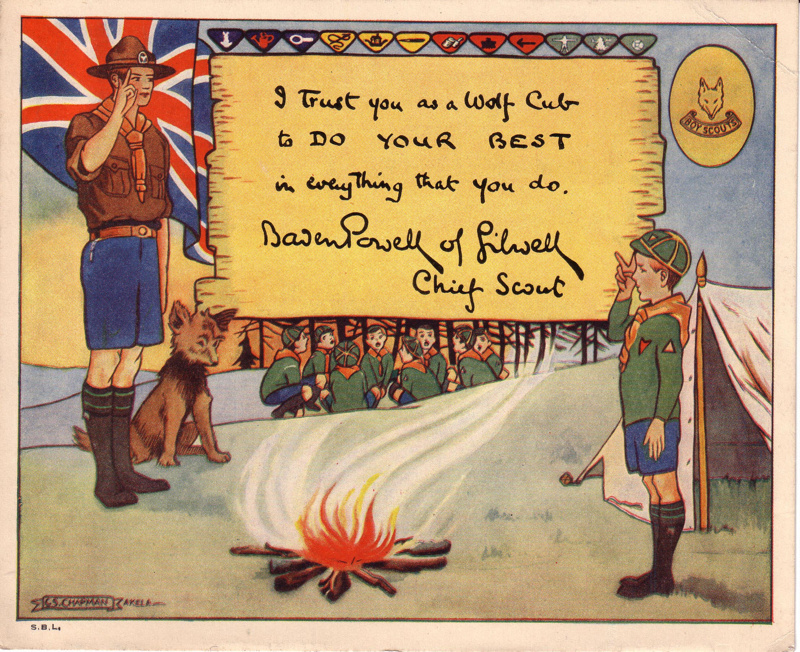 I Trust you as a Wolf Cub
to DO YOUR BEST
in everything that you do.
Baden Powell of Gilwell
Chief Scout
BOY SCOUTS
G.S. CHAPMAN AKELA
S.B.L.